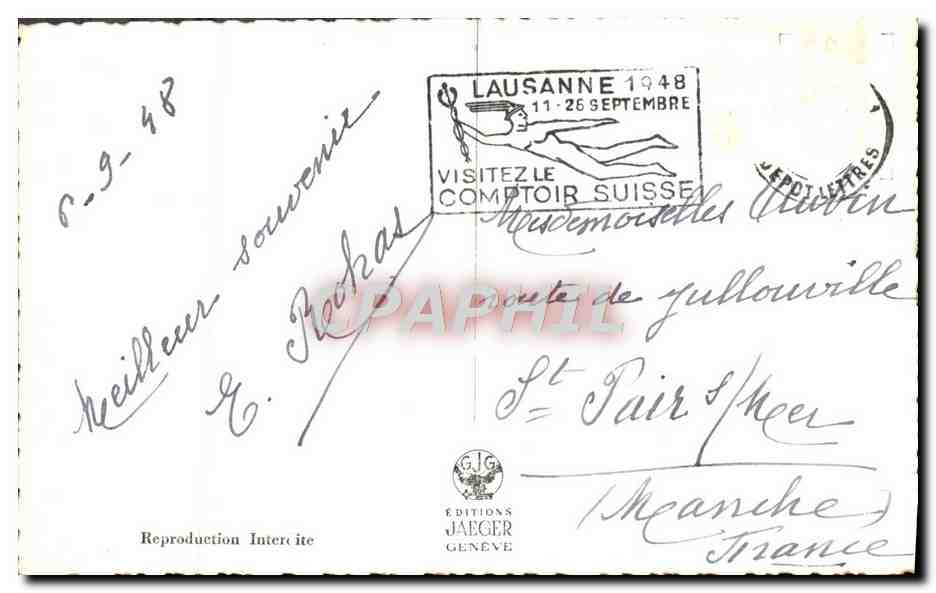 6-9-48
Meilleur souvenir
LAUSANNE 1948
11-26 SEPTEMBRE
VISITEZ LE
COMPTOIR SUISSE
DEPOT LETTRES
Mesdemoiselles Aubin
route de Jullouville
St Pair s/Mer
(Manche)
France
CPAPHIL
GJG
ÉDITIONS
JAEGER
GENÈVE
Reproduction Interdite